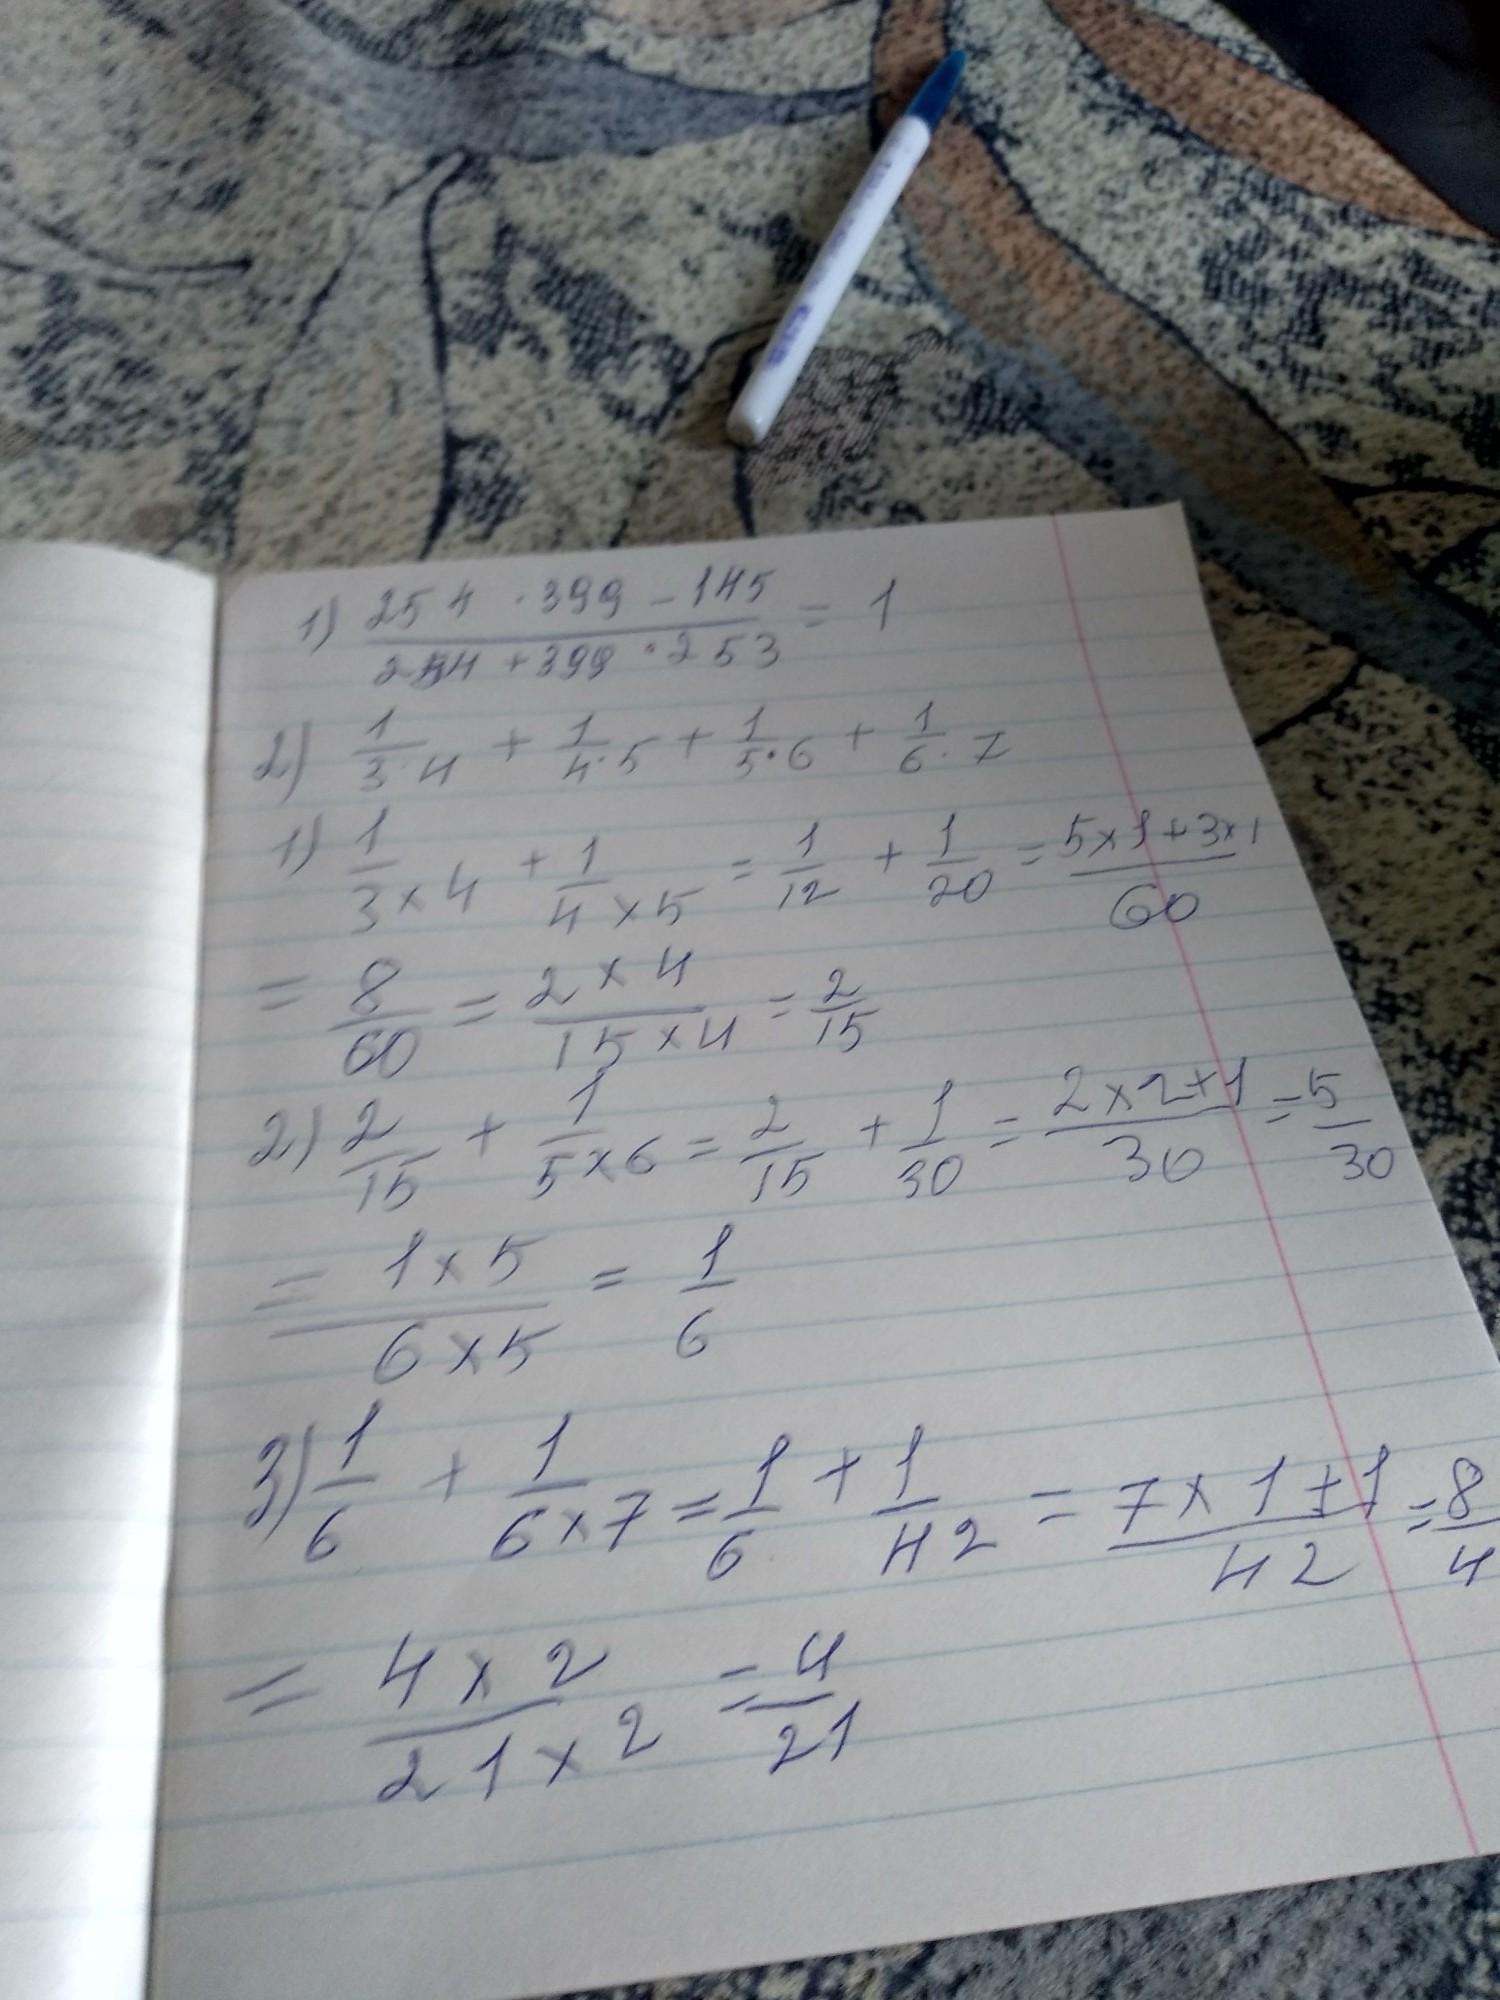 1) (254 · 399 - 145)/(254 + 399 · 253) = 1
2) 1/(3·4) + 1/(4·5) + 1/(5·6) + 1/(6·7)
1) 1/(3×4) + 1/(4×5) = 1/12 + 1/20 = (5×1+3×1)/60
= 8/60 = (2×4)/(15×4) = 2/15
2) 2/15 + 1/(5×6) = 2/15 + 1/30 = (2×2+1)/30 = 5/30
= (1×5)/(6×5) = 1/6
3) 1/6 + 1/(6×7) = 1/6 + 1/42 = (7×1+1)/42 = 8/4
= (4×2)/(21×2) = 4/21